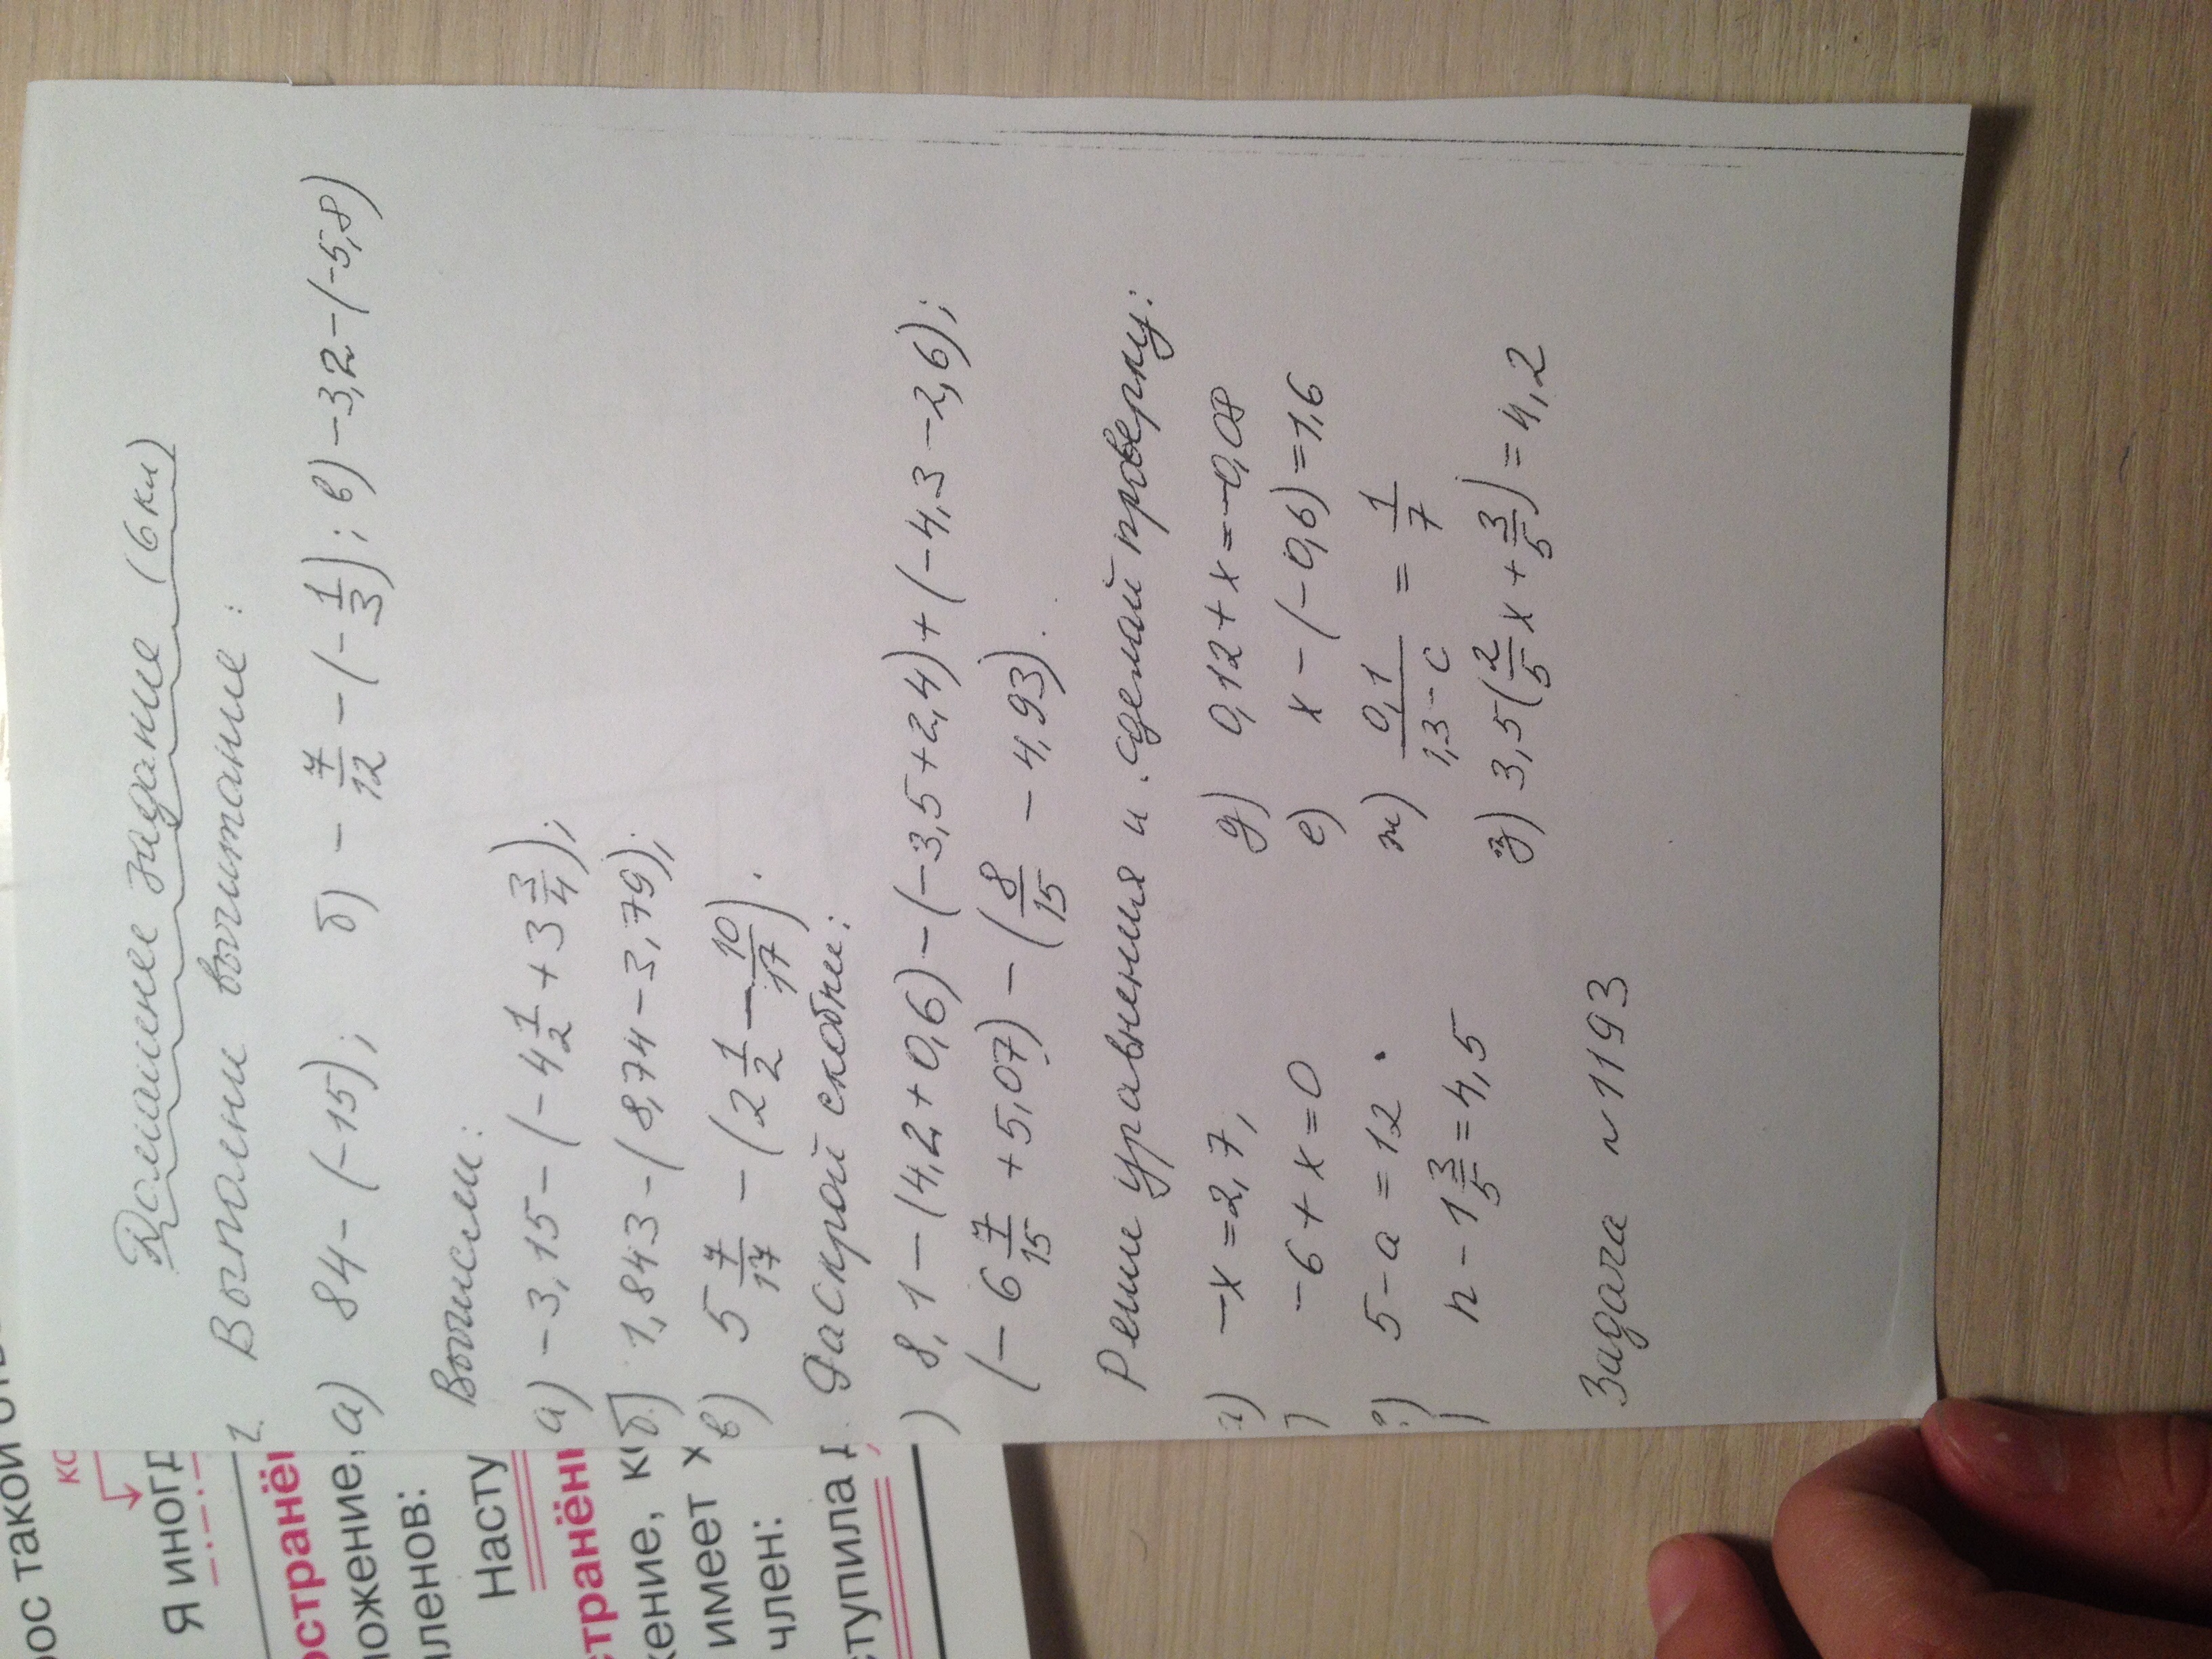 Домашнее задание (6 кл)
1. Выполни вычитание:
а) 84 - (-15); б) - 7/12 - (- 1/3); в) -3,2 - (-5,8)
Вычисли:
а) -3,15 - (- 4 1/2 + 3 3/4);
б) 1,843 - (8,74 - 3,79);
в) 5 7/17 - (2 1/2 - 10/17).
Раскрой скобки:
) 8,1 - (4,2 + 0,6) - (-3,5 + 2,4) + (-4,3 - 2,6);
(- 6 7/15 + 5,07) - (8/15 - 4,93).
Реши уравнения и сделай проверку:
а) -x = 2,7, д) 0,12 + x = -0,08
) -6 + x = 0 е) x - (-0,6) = 1,6
) 5 - a = 12 ж) 0,1/1,3 - c = 1/7
) n - 1 3/5 = 4,5 з) 3,5 (2/5 x + 3/5) = 4,2
Задача N 1193
рос такой
Я иногд
остранён
ложение,
членов:
Насту
странённ
жение, к
имеет х
член:
ступила д